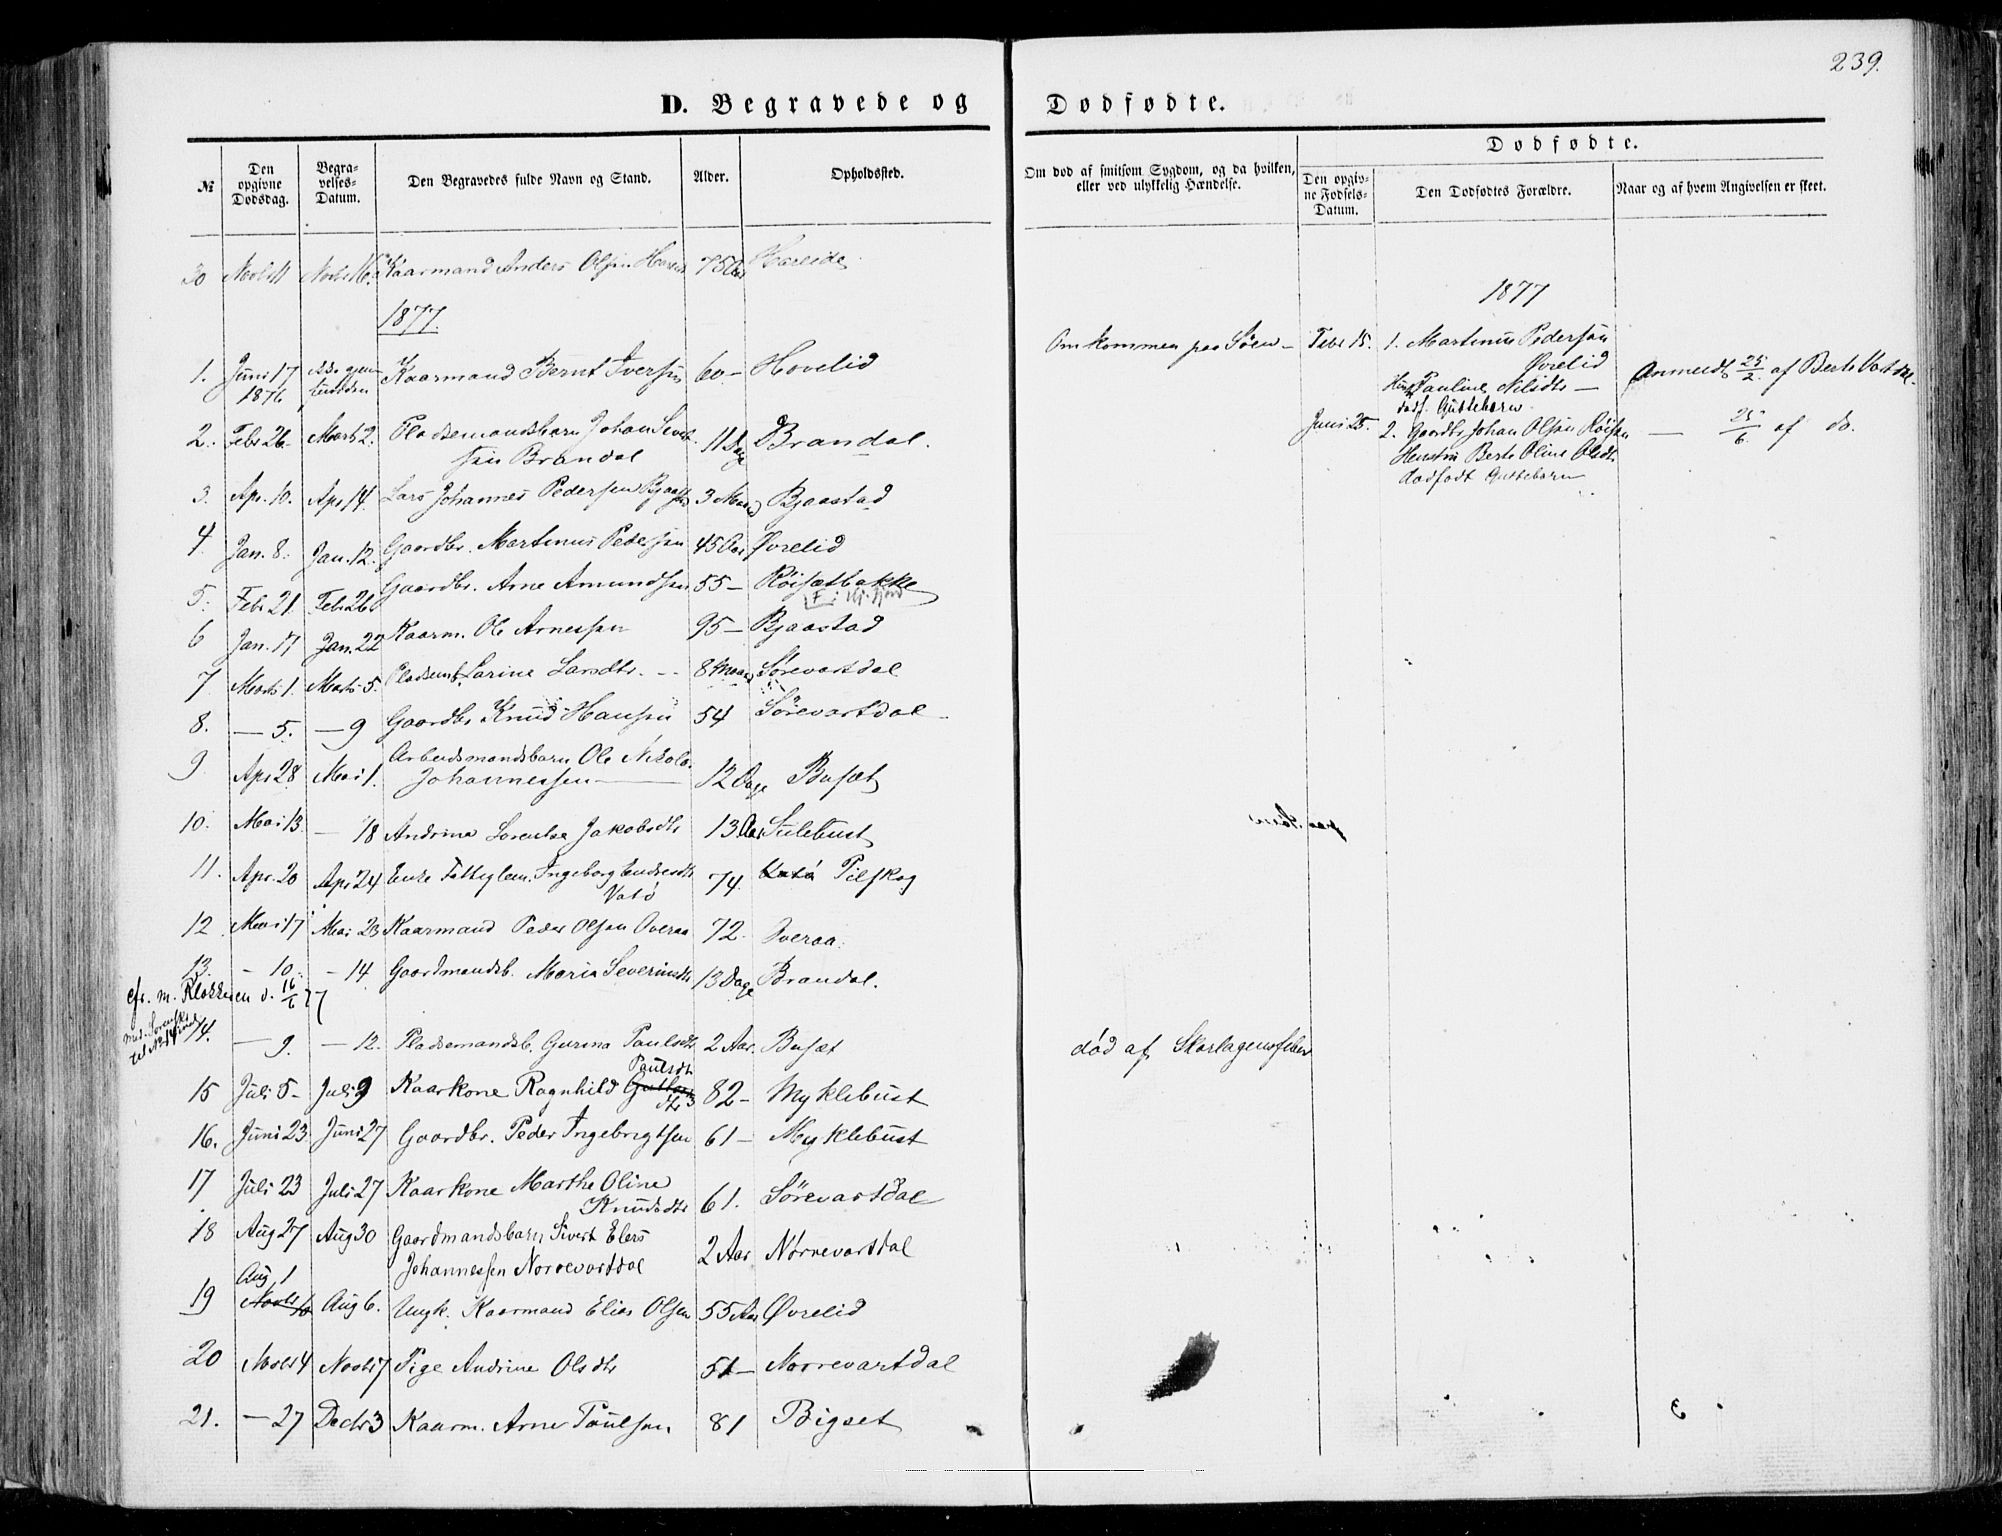 239.
D. Begravede og Dødfødte.
№ Den opgivne Dødsdag. Begravelses-Datum. Den Begravedes fulde Navn og Stand. Alder. Opholdssted.
Om død af smitsom Sygdom, og da hvilken, eller ved ulykkelig Hændelse.
Dødfødte.
Den opgivne Fødsels-Datum. Den Dødfødtes Forældre. Naar og af hvem Angivelsen er skeet.
30 Novbr 11 Novbr 16 Kaarmand Anders Olsen 75 Aar Hovelid
1877.
1. Juni 17 1876 Kaarmand Bernt Iversen 60 — Hovelid
Omkommen paa Søen —
2. Febr 26. Marts 2. Pladsemandsbarn Johan Sivert-
sen Brandal 11 Dage Brandal.
3. Apr. 10. Apr 14. Lars Johannes Pedersen 3 Maan Bjaastad
4. Jan. 8. Jan. 12. Gaardbr. Martinus Pedersen 45 Aar Øvrelid
5. Febr 21. Febr 26 Gaardbr. Arne Amundsen 55 — Röisætbakke
6 Jan. 17 Jan. 22 Kaarm. Ole Arnessen 95 — Bjaastad
7. Marts 1. Marts 5. Larine Larsdtr. 8 Maan Sörevartdal
8. — 5. — 9 Gaardbr Knud Hansen 54 Sörevartdal
9 Apr 28 Mai 1. Arbeidsmandsbarn Ole Nikolai
Johannessen 12 Dage Busæt
10. Mai 13. — 18 Andrine Lorentse Jakobsdtr 13 Aar Sulebust
11. Apr. 20 Apr 24 Enke Fattiglem. Ingeborg Endresdtr
Vatö 74. Pilskog
12 Mai 17 Mai 23 Kaarmand Peder Olsen Overaa 72. Overaa.
13. — 10. — 14. Gaardmandsb. Maria Severinsdtr 13 Dage Brandal.
cfr. m. Klokkeren d. 16/6 77
14. — 9. — 12. Pladsemandsb. Gurina Paulsdtr 2 Aar. Busæt
død af Skarlagensfeber
Paulsdtr
15 Juli 5 — Juli 9 Kaarkone Ragnhild 82 — Myklebust
16. Juni 23. Juni 27 Gaardbr. Peder Ingebrigtsen 61 — Myklebust
17 Juli 23 Juli 27 Kaarkone Marthe Oline
Knudsdtr 61. Sörevartdal
18 Aug 27 Aug 30 Gaardmandsbarn Sivert Elers
Johannessen Norrevartdal 2 Aar Nörrevartdal
Aug 1
19 Aug 6. Ungk. Kaarmand Elias Olsen 55 Aar Øvrelid
20 Novbr 4 Novbr 7 Pige Andrine Olsdtr 51 — Norrevartdal
21. — 27 Decbr 3 Kaarm. Arne Paulsen 81 Bigset
1877
Febr 15. 1. Martinus Pedersen
Øvrelid
Hustru Pauline Nilsdtr —
dødf. Guttebarn. Anmeldt 25/2. af
Juni 25. 2. Gaardbr Johan Olsen
Hustru Berte Oline Olsdtr
dødfødt Guttebarn — 25/6 af do.